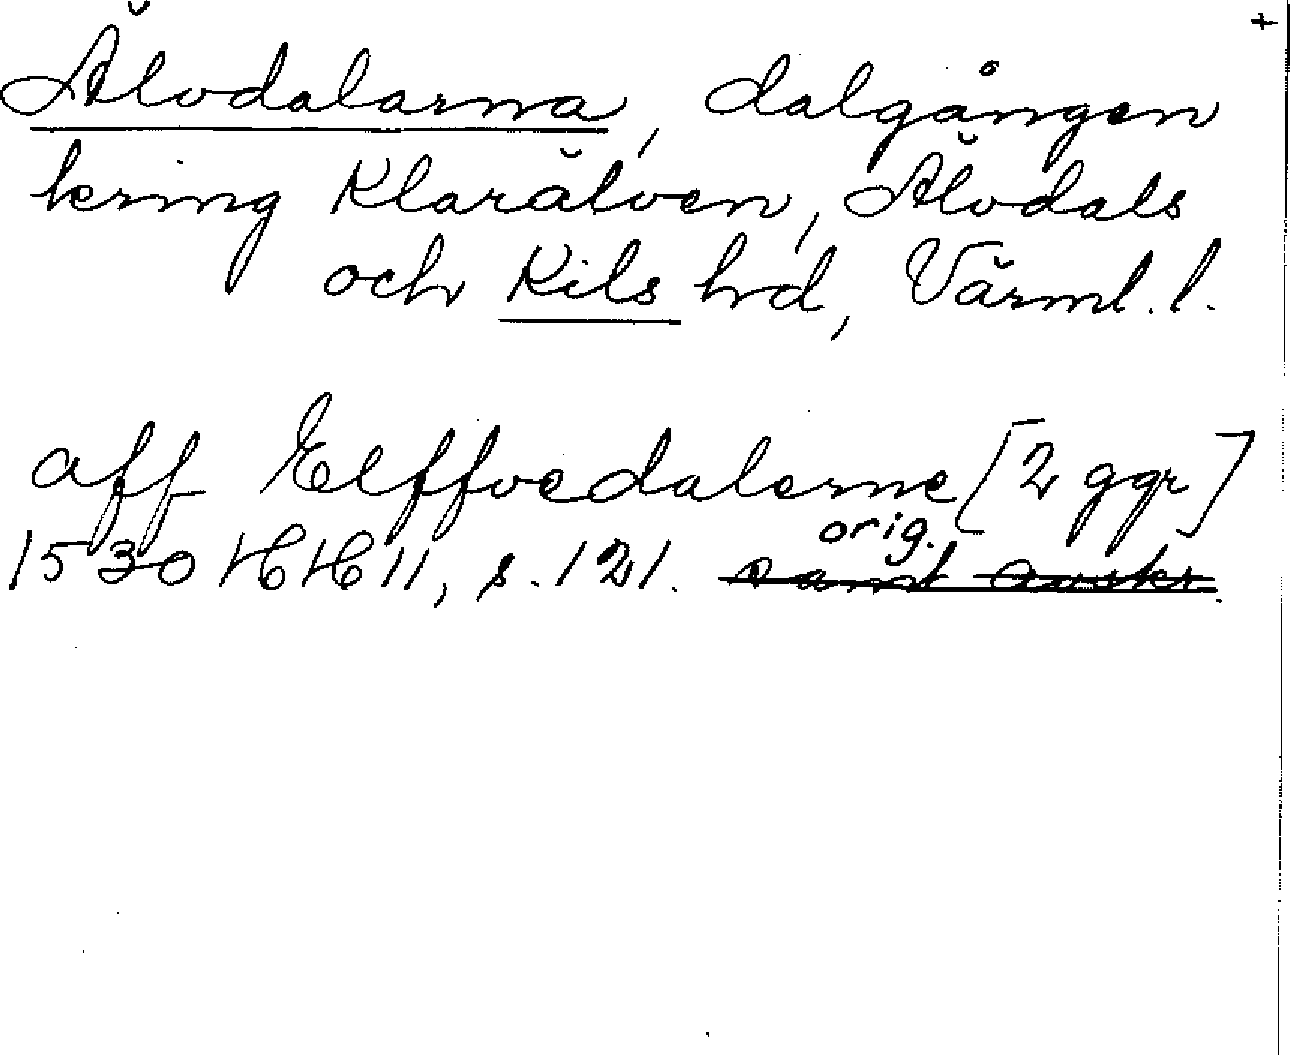 +
Älvdalarna, dalgången
kring Klarälven, Älvdals
och Kils hd, Värml. l.
aff Elffvedalerne [2 ggr]
orig.
1530 HH 11, s. 121. samt avskr.